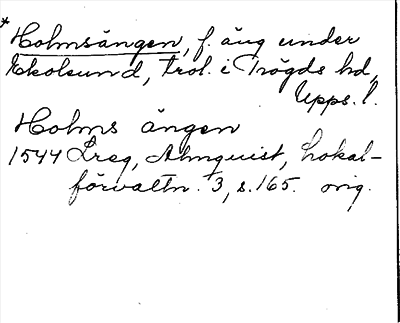 *
Holmsängen, f. äng under
Ekolsund, trol. i Trögds hd,
Upps. l.
Holms ängen
1544 Lreg, Almquist, Lokal-
förvaltn. 3, s. 165. orig.